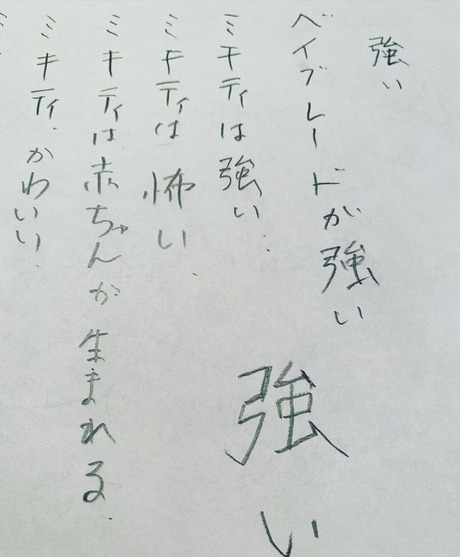 強い
ベイブレードが強い
ミキティは強い.
強い
ミキティは怖い.
ミキティは赤ちゃんが生まれる.
ミキティ.かわいい.